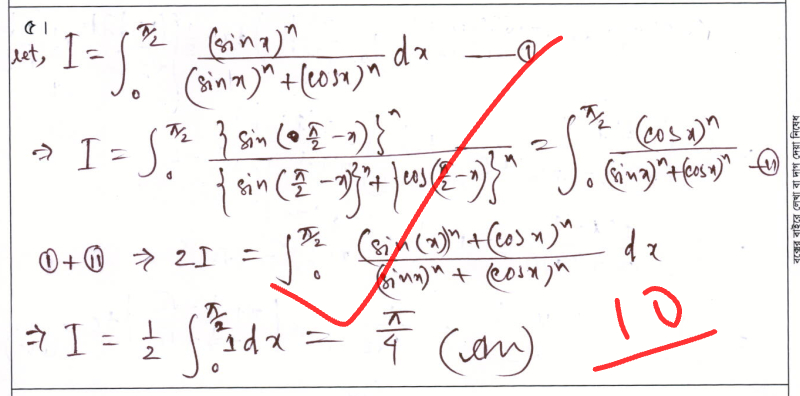 ৫।
Let, I = ∫₀^{π/2} (sin x)ⁿ / ((sin x)ⁿ + (cos x)ⁿ) dx —— ①
⇒ I = ∫₀^{π/2} {sin (π/2 - x)}ⁿ / ({sin (π/2 - x)}ⁿ + {cos (π/2 - x)}ⁿ) = ∫₀^{π/2} (cos x)ⁿ / ((sin x)ⁿ + (cos x)ⁿ) — ⑪
① + ⑪ ⇒ 2I = ∫₀^{π/2} ((sin (x))ⁿ + (cos x)ⁿ) / ((sin x)ⁿ + (cos x)ⁿ) dx
⇒ I = 1/2 ∫₀^{π/2} 1 dx = π/4 (Ans)
10
বক্সের বাইরে লেখা বা দাগ দেয়া নিষেধ